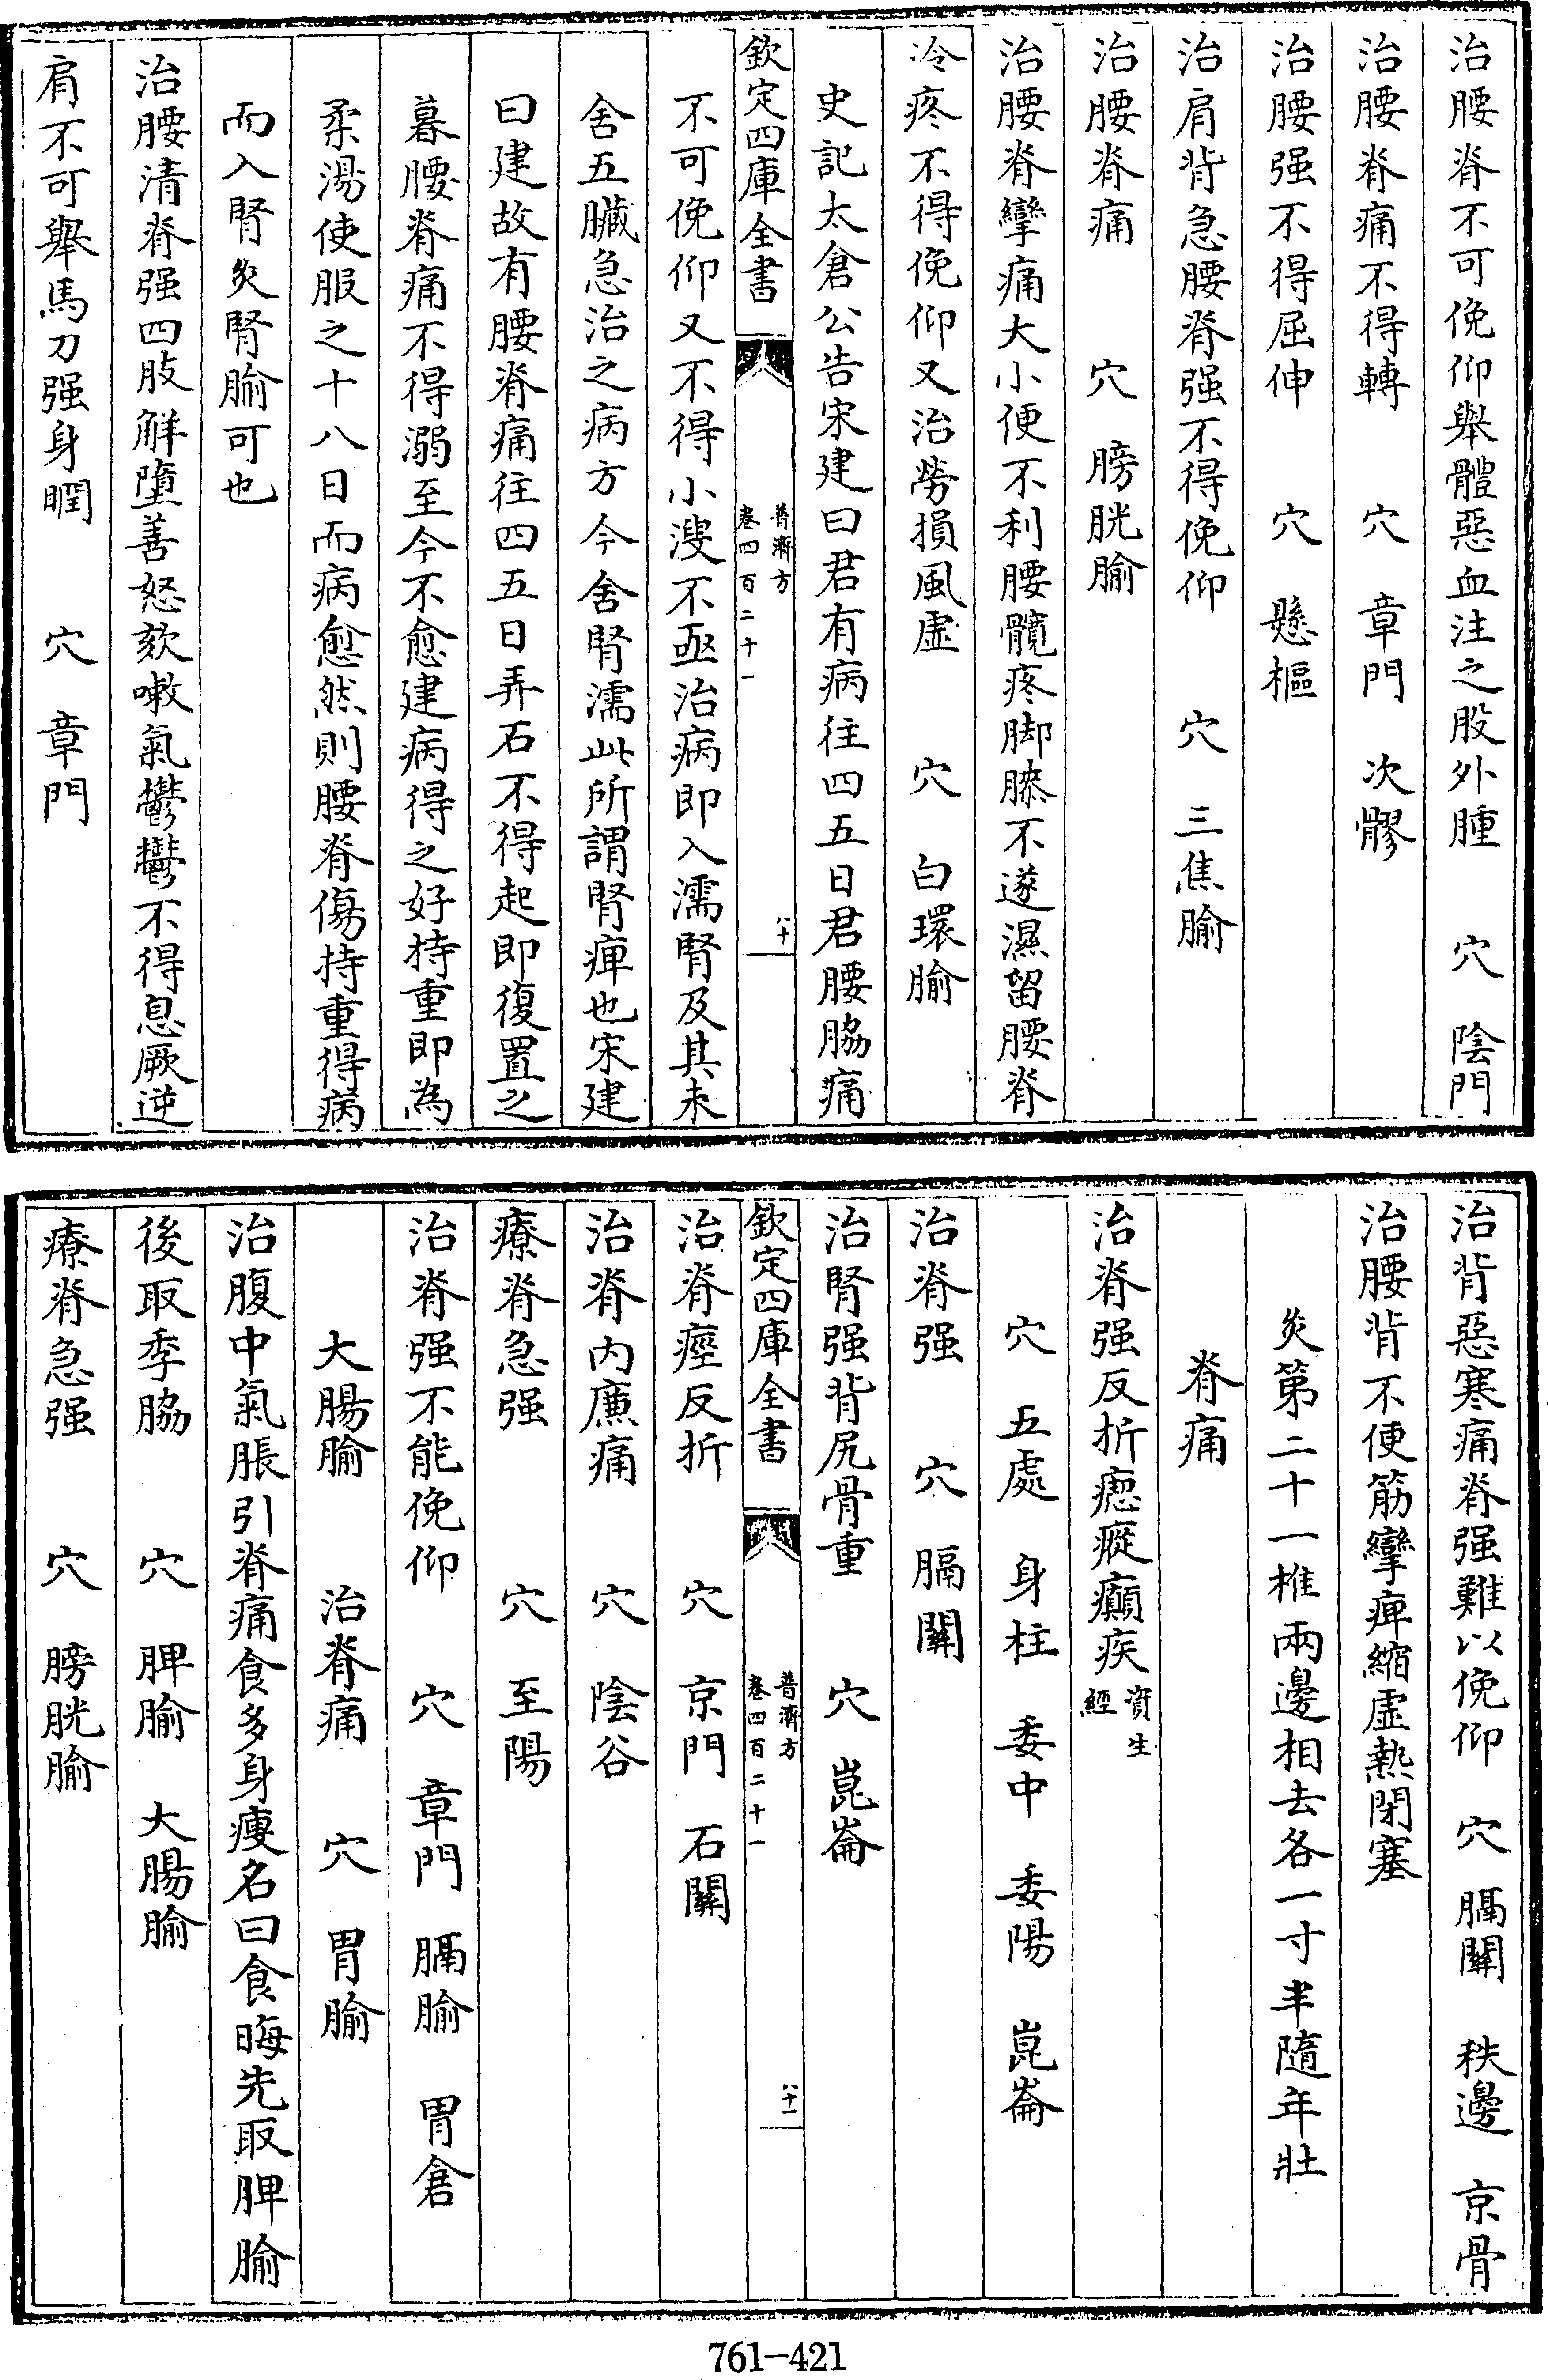 治腰脊不可俛仰舉體惡血注之股外腫　穴　陰門
治腰脊痛不得轉　穴　章門　次髎
治腰强不得屈伸　穴　懸樞
治肩背急腰脊强不得俛仰　穴　三焦腧
治腰脊痛　穴　膀胱腧
治腰脊攣痛大小便不利腰髖疼脚膝不遂濕留腰脊
冷疼不得俛仰又治勞損風虛　穴　白環腧
史記太倉公告宋建曰君有病往四五日君腰脇痛
欽定四庫全書　普濟方　卷四百二十一　八十
不可俛仰又不得小溲不亟治病即入濡腎及其未
舍五臟急治之病方今舍腎濡此所謂腎痺也宋建
曰建故有腰脊痛往四五日弄石不得起即復置之
暮腰脊痛不得溺至今不愈建病得之好持重即為
柔湯使服之十八日而病愈然則腰脊傷持重得病
而入腎灸腎腧可也
治腰清脊强四肢解墮善怒欬嗽氣鬱鬱不得息厥逆
肩不可舉馬刀强身瞤　穴　章門
治背惡寒痛脊强難以俛仰　穴　膈關　秩邊　京骨
治腰背不便筋攣痺縮虛熱閉塞
灸第二十一椎兩邊相去各一寸半隨年壯
脊痛
治脊强反折瘛瘲癲疾資生經
穴　五處　身柱　委中　委陽　崑崙
治脊强　穴　膈關
治腎强背尻骨重　穴　崑崙
欽定四庫全書　普濟方　卷四百二十一　八十一
治脊痙反折　穴　京門　石關
治脊内廉痛　穴　陰谷
療脊急强　穴　至陽
治脊强不能俛仰　穴　章門　膈腧　胃倉
大腸腧　治脊痛　穴　胃腧
治腹中氣脹引脊痛食多身瘦名曰食晦先取脾腧
後取季脇　穴　脾腧　大腸腧
療脊急强　穴　膀胱腧
761-421